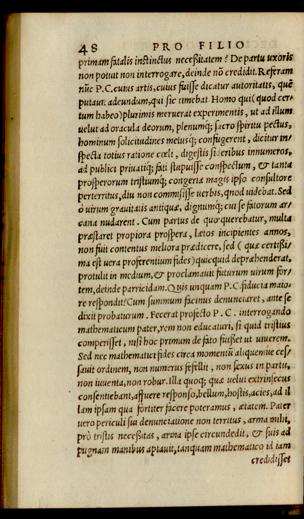 48 PRO FILIO
primam fatalis instinctus necessitatem? De partu uxoris
non potuit non interrogare, deinde nõ credidit. Referam
nũc P.C. cuius artis, cuius fuisse dicatur autoritatis, quẽ
putaut adeundum, qui sic timebat. Homo qui (quod cer-
tum habeo) plurimis meruerat experimentis, ut ad illum
uelut ad oracula deorum, plenumq; sacro spiritu pectus,
hominum solicitudines metusq; confugerent, dicitur in-
specta totius ratione cœli, digestis sideribus innumeros,
ad publici priuatiq; fati stupuisse conspectum, & tanta
prosperorum tristiumq; congerie magis ipso consultore
perterritus, diu non commisisse uerbis, quod uidebat. Sed
ô uirum grauitatis antiquæ, dignumq; cui se fatorum ar-
cana nudarent. Cum partus de quo querebatur, multa
præstaret propiora prospera, lætos incipientes annos,
non fuit contentus meliora prædicere, sed (quæ certissi-
ma est uera proferentium fides) quicquid deprehenderat,
protulit in medium, & proclamauit futurum uirum for-
tem, deinde parricidam. Quis unquam P.C. fiducia maio-
re respondit? Cum summum facinus denunciaret, ante se
dixit probaturum. Fecerat profecto P.C. interrogando
mathematicum pater, rem non educaturi, si quid tristius
comperisset, nisi hoc primum de fato fuisset ut uiuerem.
Sed nec mathematici fides circa momentũ aliquem ue ces-
sauit ordinem, non numerus fefellit, non sexus in partu,
non iuuenta, non robur. Illa quoq; quæ uelut extrinsecus
consentiebant, affuere responso, bellum, hostis, acies, ad il
lam ipsam qua fortiter facere poteramus, ætatem. Pater
uero periculi sui denunciatione non territus, arma mihi,
prò tristis necessitas, arma ipse circundedit, & suis ad
pugnam manibus aptauit, tanquam mathematico id iam
credidisset